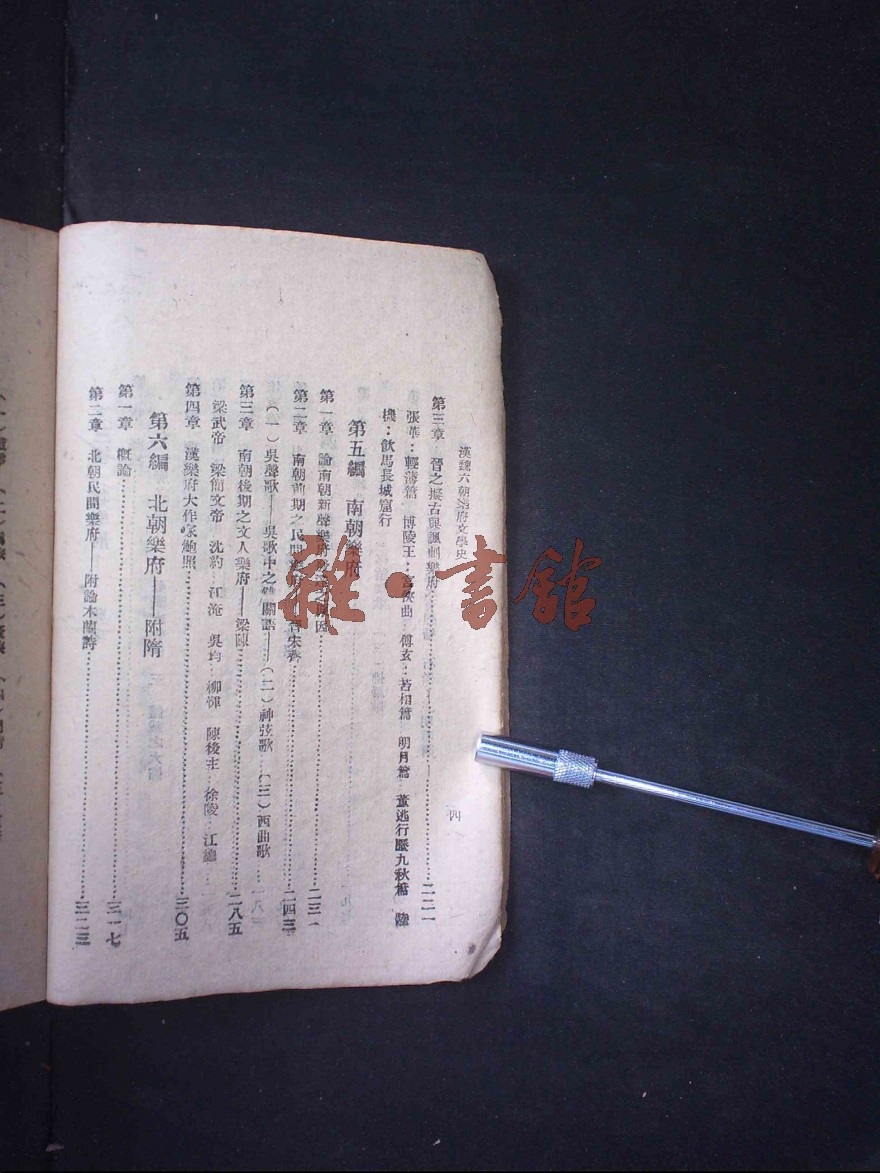 漢魏六朝樂府文學史
四
第三章 晉之擬古與諷刺樂府………二二一
張華：輕薄篇 博陵王：宮俠曲 傅玄：若相篇 明月篇 董逃行歷九秋篇 陸
機：飲馬長城窟行
第五編 南朝樂府
第一章 論南朝新聲樂府………二三一
第二章 南朝前期之民間 晉宋齊………二四三
（一）吳聲歌——吳歌中之雙關語——（二）神弦歌 （三）西曲歌
第三章 南朝後期之文人樂府——梁陳………二八五
梁武帝 梁簡文帝 沈約 江淹 吳均 柳惲 陳後主 徐陵 江總
第四章 漢樂府大作家鮑照………三〇五
第六編 北朝樂府——附隋
第一章 概論………三一七
第二章 北朝民間樂府——附論木蘭詩………三二三
雜·書館